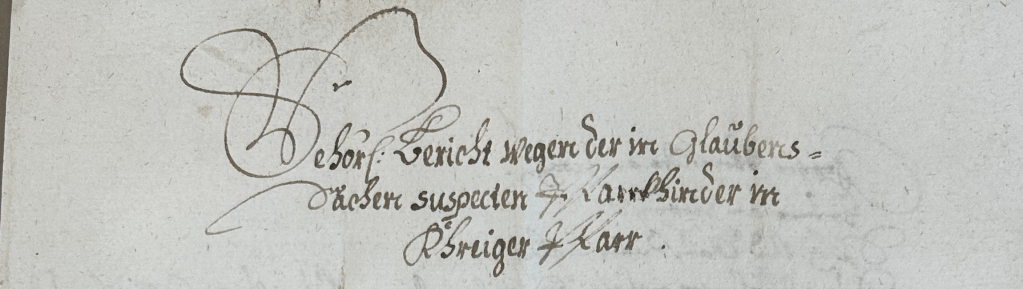 Gehorſ: Bericht wegen der in Glaubens=
Sachen suspecten Pfarrkhinder in
Khreiger Pfarr.